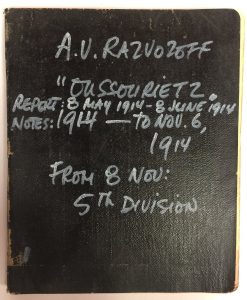 A.V. RAZVOZOFF
"OUSSOURIETZ."
REPORT: 8 MAY 1914 - 8 JUNE 1914
NOTES: 1914 — TO NOV. 6,
1914
FROM 8 NOV:
5TH DIVISION